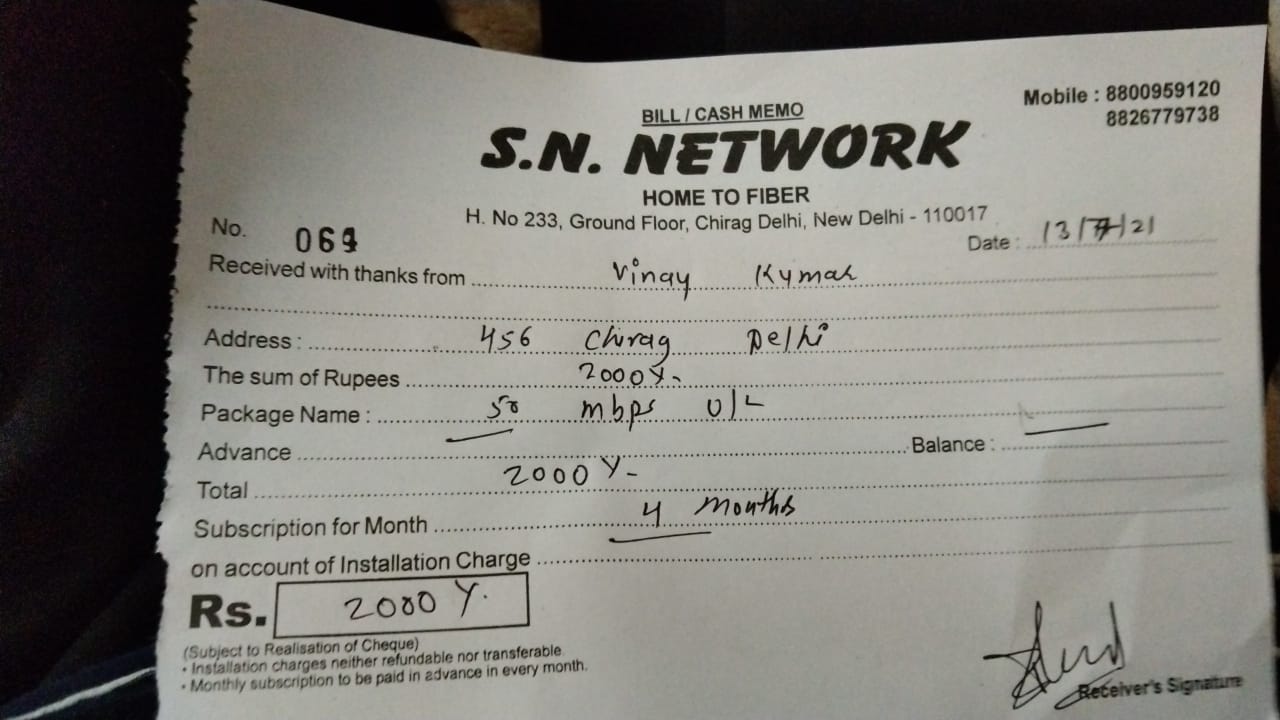 BILL / CASH MEMO
Mobile : 8800959120
8826779738
S.N. NETWORK
HOME TO FIBER
H. No 233, Ground Floor, Chirag Delhi, New Delhi - 110017
No. 064
Date : 13/7/21
Received with thanks from Vinay Kymar
Address : 456 Chirag Delhi
The sum of Rupees 2000/-
Package Name : 50 mbps U/L
Advance Balance :
Total 2000/-
Subscription for Month 4 Months
on account of Installation Charge
Rs. 2000/-
(Subject to Realisation of Cheque)
• Installation charges neither refundable nor transferable.
• Monthly subscription to be paid in advance in every month.
Receiver's Signature